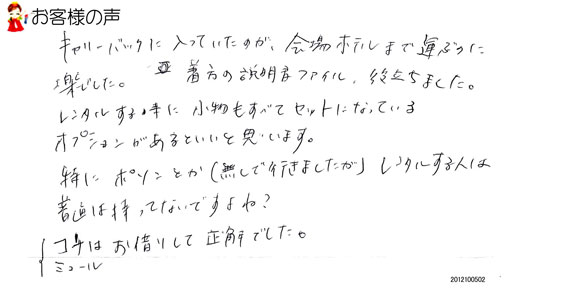 お客様の声
キャリーバックに入っていたのが、会場ホテルまで運ぶのに
楽でした。 着方の説明書ファイル、役立ちました。
レンタルする時に小物もすべてセットになっている
オプションがあるといいと思います。
特に とか(無しで行きましたが)レンタルする人は
普通は持ってないですよね?
コチはお借りして正解でした。
ミュール
2012100502